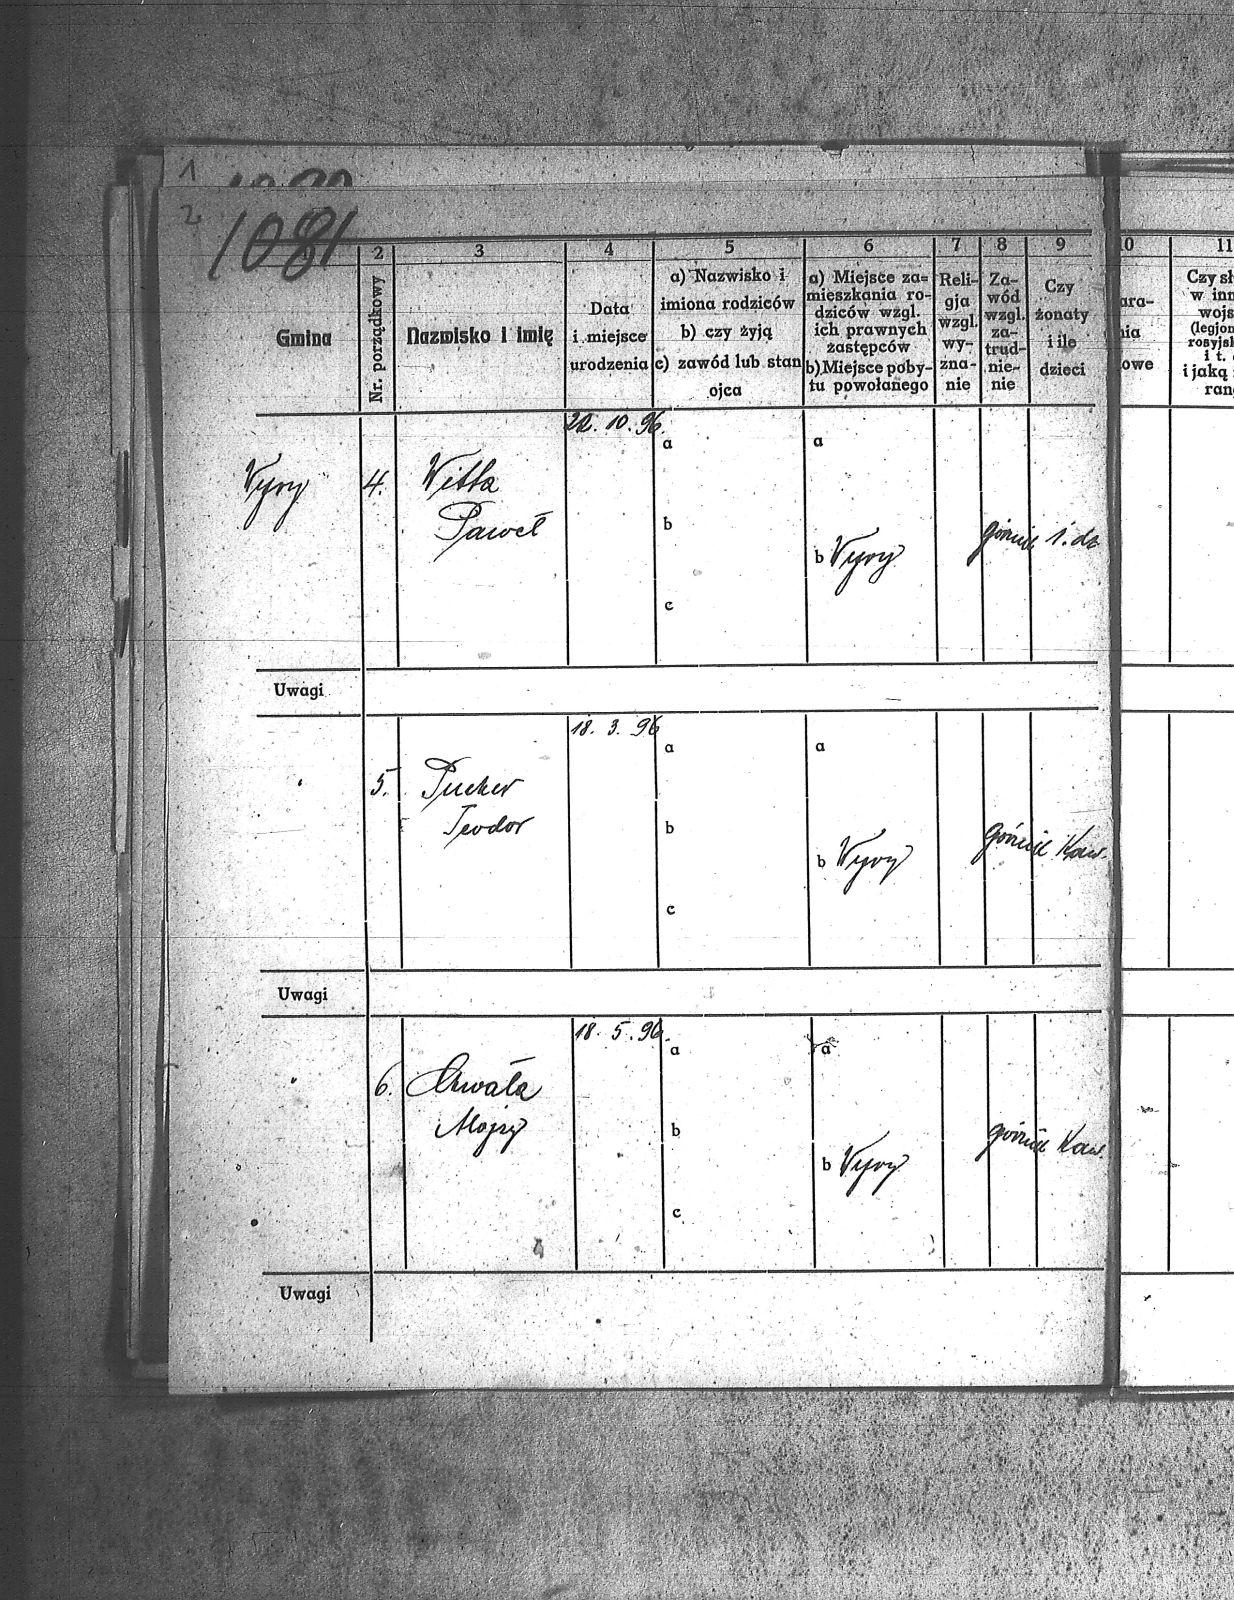 1
2
1081
2 3 4 5 6 7 8 9 10 11
Gmina
Nr. porządkowy
Nazwisko i imię
Data
i miejsce
urodzenia
a) Nazwisko i
imiona rodziców
b) czy żyją
c) zawód lub stan
ojca
a) Miejsce za=
mieszkania ro-
dziców wzgl.
ich prawnych
zastępców
b) Miejsce poby-
tu powołanego
Reli-
gja
wzgl.
wy-
zna-
nie
Za-
wód
wzgl.
za-
trud-
nie-
nie
Czy
żonaty
i ile
dzieci
ara-
nia
owe
Czy sł
w inn
wojs
(legjon
rosyjsk
i t.
i jaką
ran
22. 10. 96.
a a
Wyry 4. Witta
Paweł
b
b Wyry górnik 1. dz
c
Uwagi
18. 3. 96
a a
" 5. Pucher
Teodor
b
b Wyry górnik Kaw.
c
Uwagi
18. 5. 96.
a a
" 6. Chwała
Alojzy
b
b Wyry górnik Kaw.
c
Uwagi